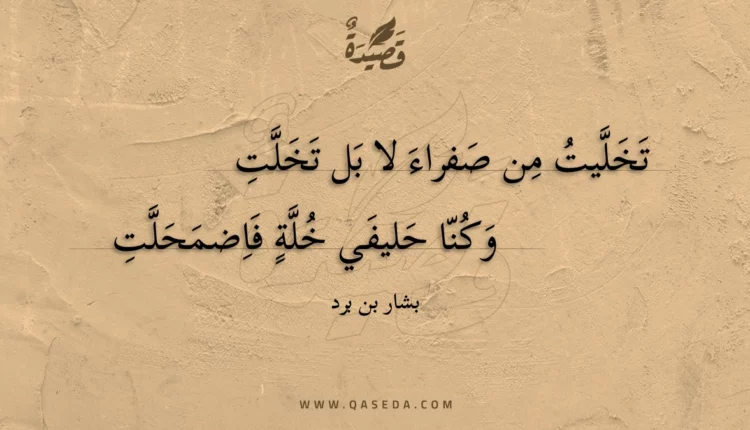 قَصِيدَةٌ
تَخَلَّيتُ مِن صَفراءَ لا بَل تَخَلَّتِ
وَكُنّا حَليفَي خُلَّةٍ فَاِضمَحَلَّتِ
بشار بن برد
WWW.QASEDA.COM